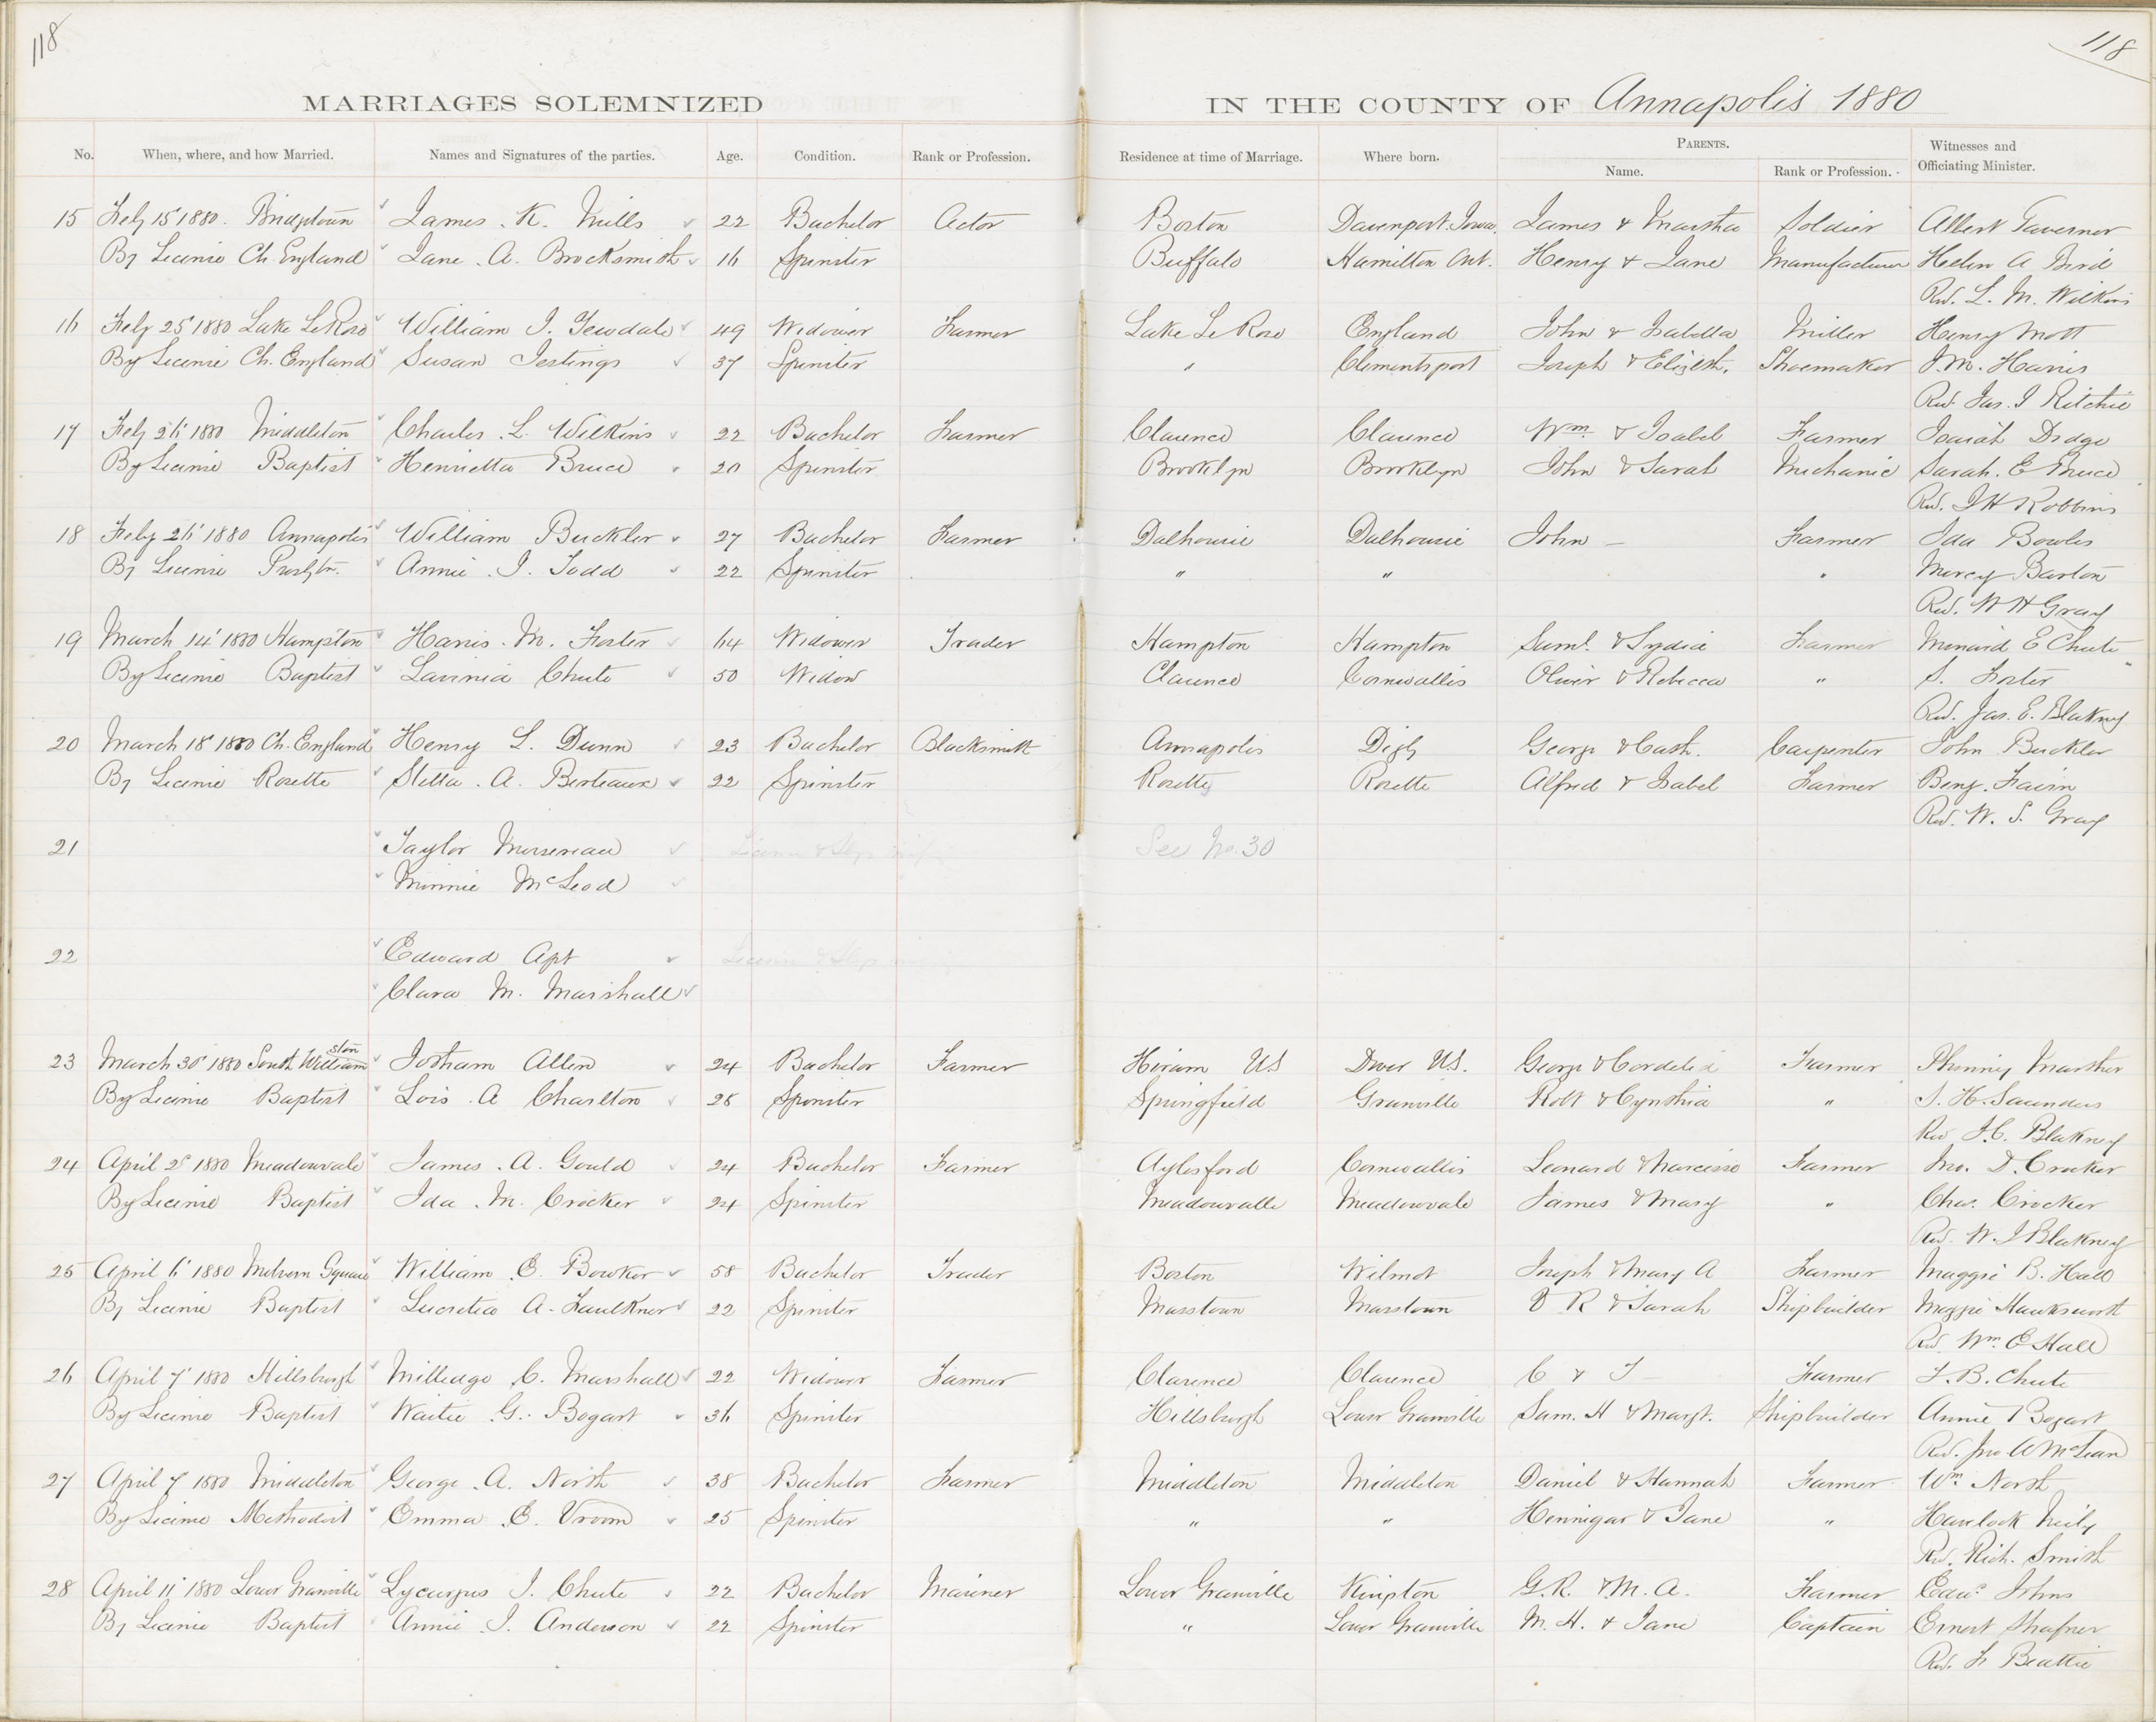 118
118
MARRIAGES SOLEMNIZED IN THE COUNTY OF Annapolis 1880
No. When, where, and how Married. Names and Signatures of the parties. Age. Condition. Rank or Profession. Residence at time of Marriage. Where born. PARENTS. Name. Rank or Profession. Witnesses and Officiating Minister.
15 Feby 15 1880. Bridgetown James. K. Mills 22 Bachelor Actor Boston Davenport. Iowa. James & Marsha Soldier Albert Taverner
By License Ch. England Jane. A. Brocksmith 16 Spinster Buffalo Hamilton Ont. Henry & Jane Manufacturer Helen A Bird
Rev. L. M. Wilkins
16 Feby 25 1880 Lake LeRose William J. 49 Widower Farmer Lake Le Rose England John & Isabella Miller Henry Mott
By License Ch. England Susan 37 Spinster " Clementsport Joseph & Elizbth. Shoemaker J. M. Harris
Rev. Jas. J Ritchie
17 Feby 26 1880 Middleton Charles. L. Wilkins 22 Bachelor Farmer Clarence Clarence Wm & Isabel Farmer Isaiah Dodge
By License Baptist Henrietta Bruce 20 Spinster Brooklyn Brooklyn John & Sarah Mechanic Sarah. E Bruce
Rev. J H Robbins
18 Feby 26 1880 Annapolis William Buckler 27 Bachelor Farmer Dalhousie Dalhousie John — Farmer Ida Bowles
By License Presbytn. Annie. J. Todd 22 Spinster " " " Mercy Barton
Rev. W H Gray
19 March 14 1880 Hampton Harris. M. Foster 64 Widower Trader Hampton Hampton Saml. & Lydia Farmer Minard E Chute
By License Baptist Lavinia Chute 50 Widow Clarence Cornwallis Oliver & Rebecca " S. Foster
Rev. Jas. E. Blakney
20 March 18 1880 Ch. England Henry L. Dunn 23 Bachelor Blacksmith Annapolis Digby George & Cath. Carpenter John Buckler
By License Rosette Stella. A. Berteaux 22 Spinster Rosette Rosette Alfred & Isabel Farmer Benj. Fairn
Rev. W. S. Gray
21 Taylor Mersereau See No. 30
Minnie McLeod
22 Edward Apt
Clara M. Marshall
23 March 30 1880 South Williamston Jotham Allen 24 Bachelor Farmer Hiram US Dover US. George & Cordelia Farmer Phinney
By License Baptist Lois. A Charlton 28 Spinster Springfield Granville Robt & Cynthia " S. H. Saunders
Rev J. C. Blakney
24 April 2 1880 Meadowvale James. A. Gould 24 Bachelor Farmer Aylesford Cornwallis Leonard & Narcisse Farmer Jno. D. Crocker
By License Baptist Ida. M. Crocker 24 Spinster Meadowvale Meadowvale James & Mary " Chas. Crocker
Rev. W. J Blakney
25 April 6 1880 Melvern Square William E. Bowker 58 Bachelor Trader Boston Wilmot Joseph & Mary A Farmer Maggie B. Hall
By License Baptist Lucretia A. Faulkner 22 Spinster Masstown Masstown D R & Sarah Shipbuilder Maggie Hawksworth
Rev. Wm. E Hall
26 April 7 1880 Hillsburgh Milledge C. Marshall 22 Widower Farmer Clarence Clarence C & T — Farmer F. B. Chute
By License Baptist Waitie G. Bogart 36 Spinster Hillsburgh Lower Granville Sam. H & Margt. Shipbuilder Annie Bogart
Rev. Jno A McLean
27 April 7 1880 Middleton George. A. North 38 Bachelor Farmer Middleton Middleton Daniel & Hannah Farmer Wm North
By License Methodist Emma E. Vroom 25 Spinster " " Hennigar & Jane " Havelock Neily
Rev. Rich. Smith
28 April 11 1880 Lower Granville Lycurgus J. Chute 22 Bachelor Mariner Lower Granville Kempton G. R. & M. A. Farmer Edwd. Johns
By License Baptist Annie J. Anderson 22 Spinster " Lower Granville M. H. & Jane Captain Ernest Shafner
Rev. F. Beattie